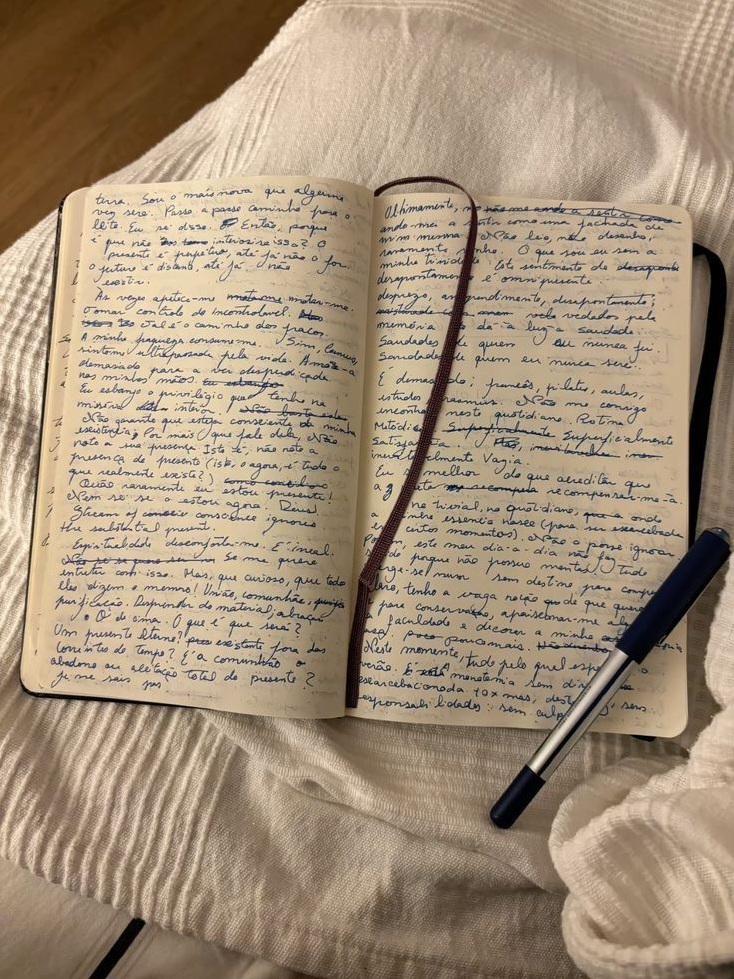 terra. Sou o mais nova que alguma
vez serei. Passo a passo caminho para o
leito. Eu se disse. Então, porque
é que não interiorizo isso? O
presente é perpétuo, até já não o for.
o futuro é distante, até já não
existir.
As vezes apetece-me matar-me.
Tomar controlo do incontrolável.
Tal é o caminho dos fracos.
A minha fraqueza consume-me. Sim,
sintome ultrapassada pela vida.
demasiado para a ver desperdiçada
nas minhas mãos. Eu esbanjo
Eu esbanjo o privilégio que tenho na
miséria interior. Não basta
Não garante que esteja consciente da minha
existência; Por mais que fale dela, Não
noto a sua presença. Isto é, não noto a
presença do presente (isto, o agora, é tudo o
que realmente existe?)
Quão raramente eu estou presente!
Nem sei se o estou agora. Deus.
Stream of conscience ignores
the substantial present.
Espiritualidade desconforta-me. É irreal.
Se me quero
entreter com isso. Mas, que curioso, que todos
eles dizem o mesmo! União, comunhão,
purificação. Desprender do material, abraçar
o O de cima. O que é que será?
Um presente eterno? existente fora das
correntes do tempo? É a comunhão o
abandono ou aleitação total do presente?
je ne sais pas
Ultimamente, não me ando a sentir como
ando-me a sentir como uma fachada de
mim mesma. Não leio, não desenho,
raramente O que sou eu sem a
minha Este sentimento de
desapontamento é omnipresente.
desprezo, arrependimento, desapontamento;
vedados pela
memória dá-a luz-a saudade.
Saudades de quem eu nunca fui.
Saudades de quem eu nunca serei.
É demasiado; francês, pilates, aulas,
estudos erasmus. Não me consigo
encontrar neste quotidiano. Rotina
Metódica. Superficialmente Superficialmente
Satisfatória.
Vazia.
Eu melhor do que acreditar que
a recompensa recompensar-me-á.
no trivial, no quotidiano, que a onde
a minha essencia nasce (para ser exacerbada
em certos momentos). Não o posso ignorar
Porém, este meu dia-a-dia não faz tudo
porque não possuo mentes
sem destino para
tenho a vaga noção do que quero
para conservação, apaixonar-me
a faculdade e decorar a minha
pouco mais.
Neste momento, tudo pelo qual espero
verão. É monotonia sem
10x mas,
responsabilidades: sem